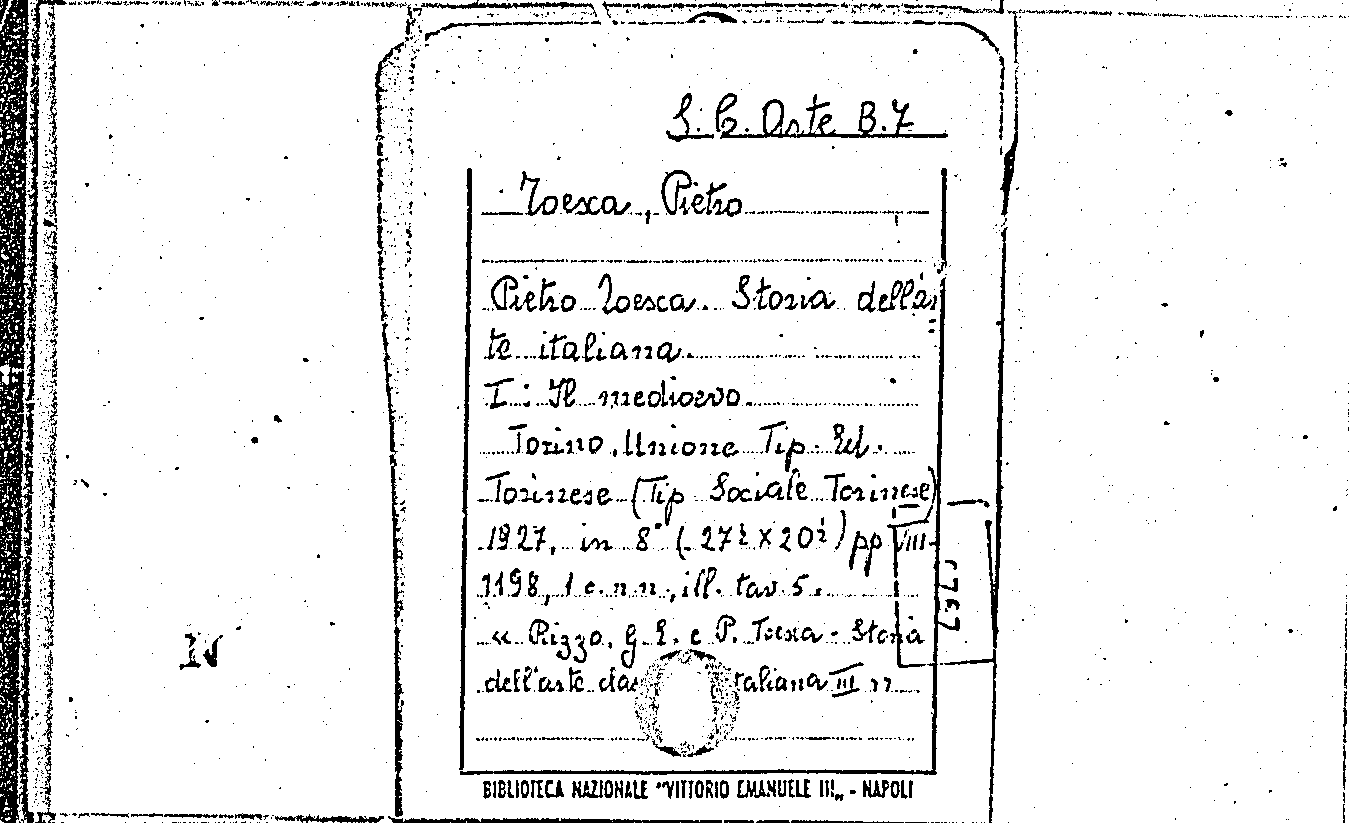 S. C. Arte B.7
Toesca, Pietro
Pietro Toesca. Storia dell'ar
te italiana.
I: Il medioevo.
Torino, Unione Tip. Ed.
Torinese (Tip Sociale Torinese)
1927, in 8° (27½ x 20½) pp VIII-
1198, 1 c. n n., ill. tav. 5.
« Rizzo, G. E. e P. Toesca - Storia
dell'arte taliana III »
BIBLIOTECA NAZIONALE "VITTORIO EMANUELE III„ - NAPOLI